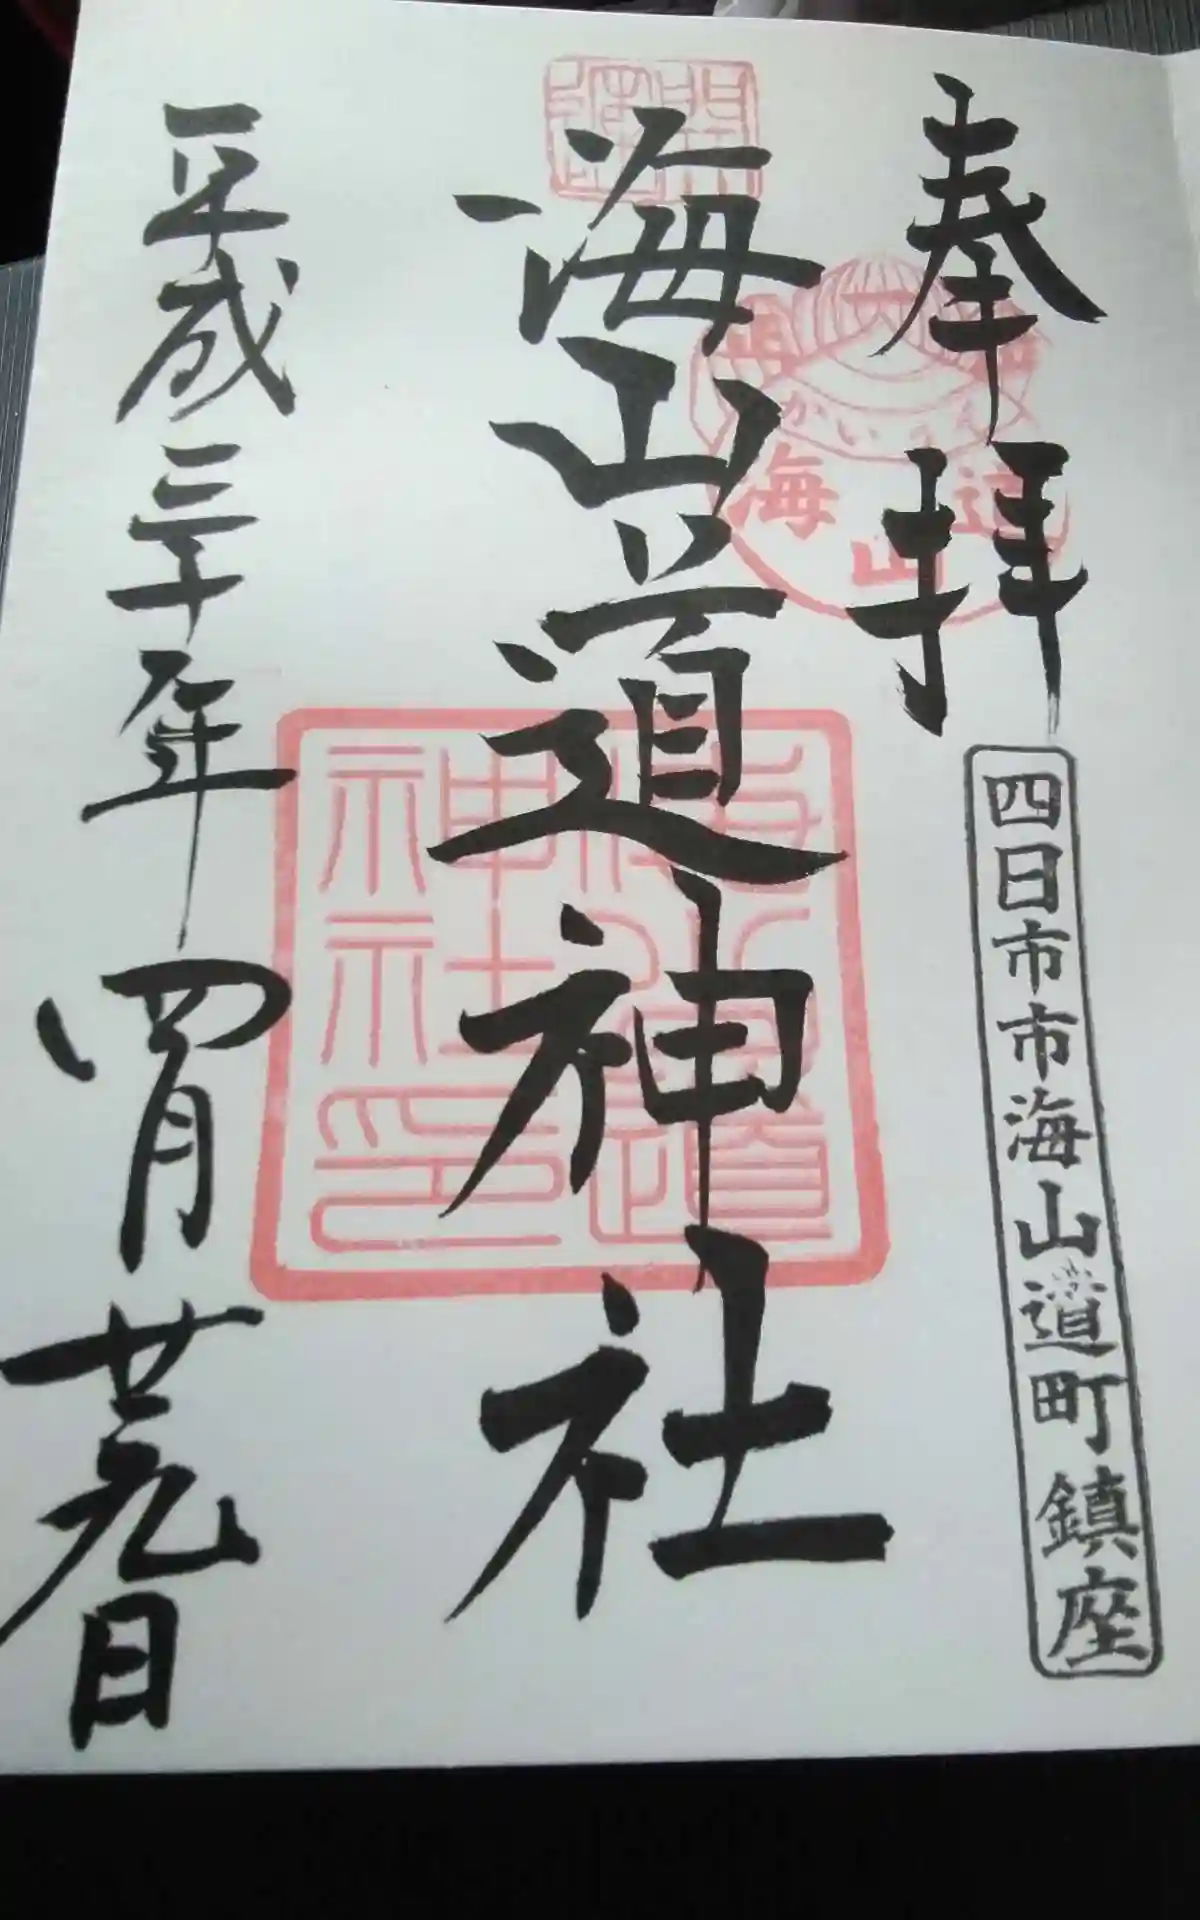 奉拝
四日市市海山道町鎮座
開運
かいうん
海山道
海山道神社
海山道神社印
平成三十年四月廿九日